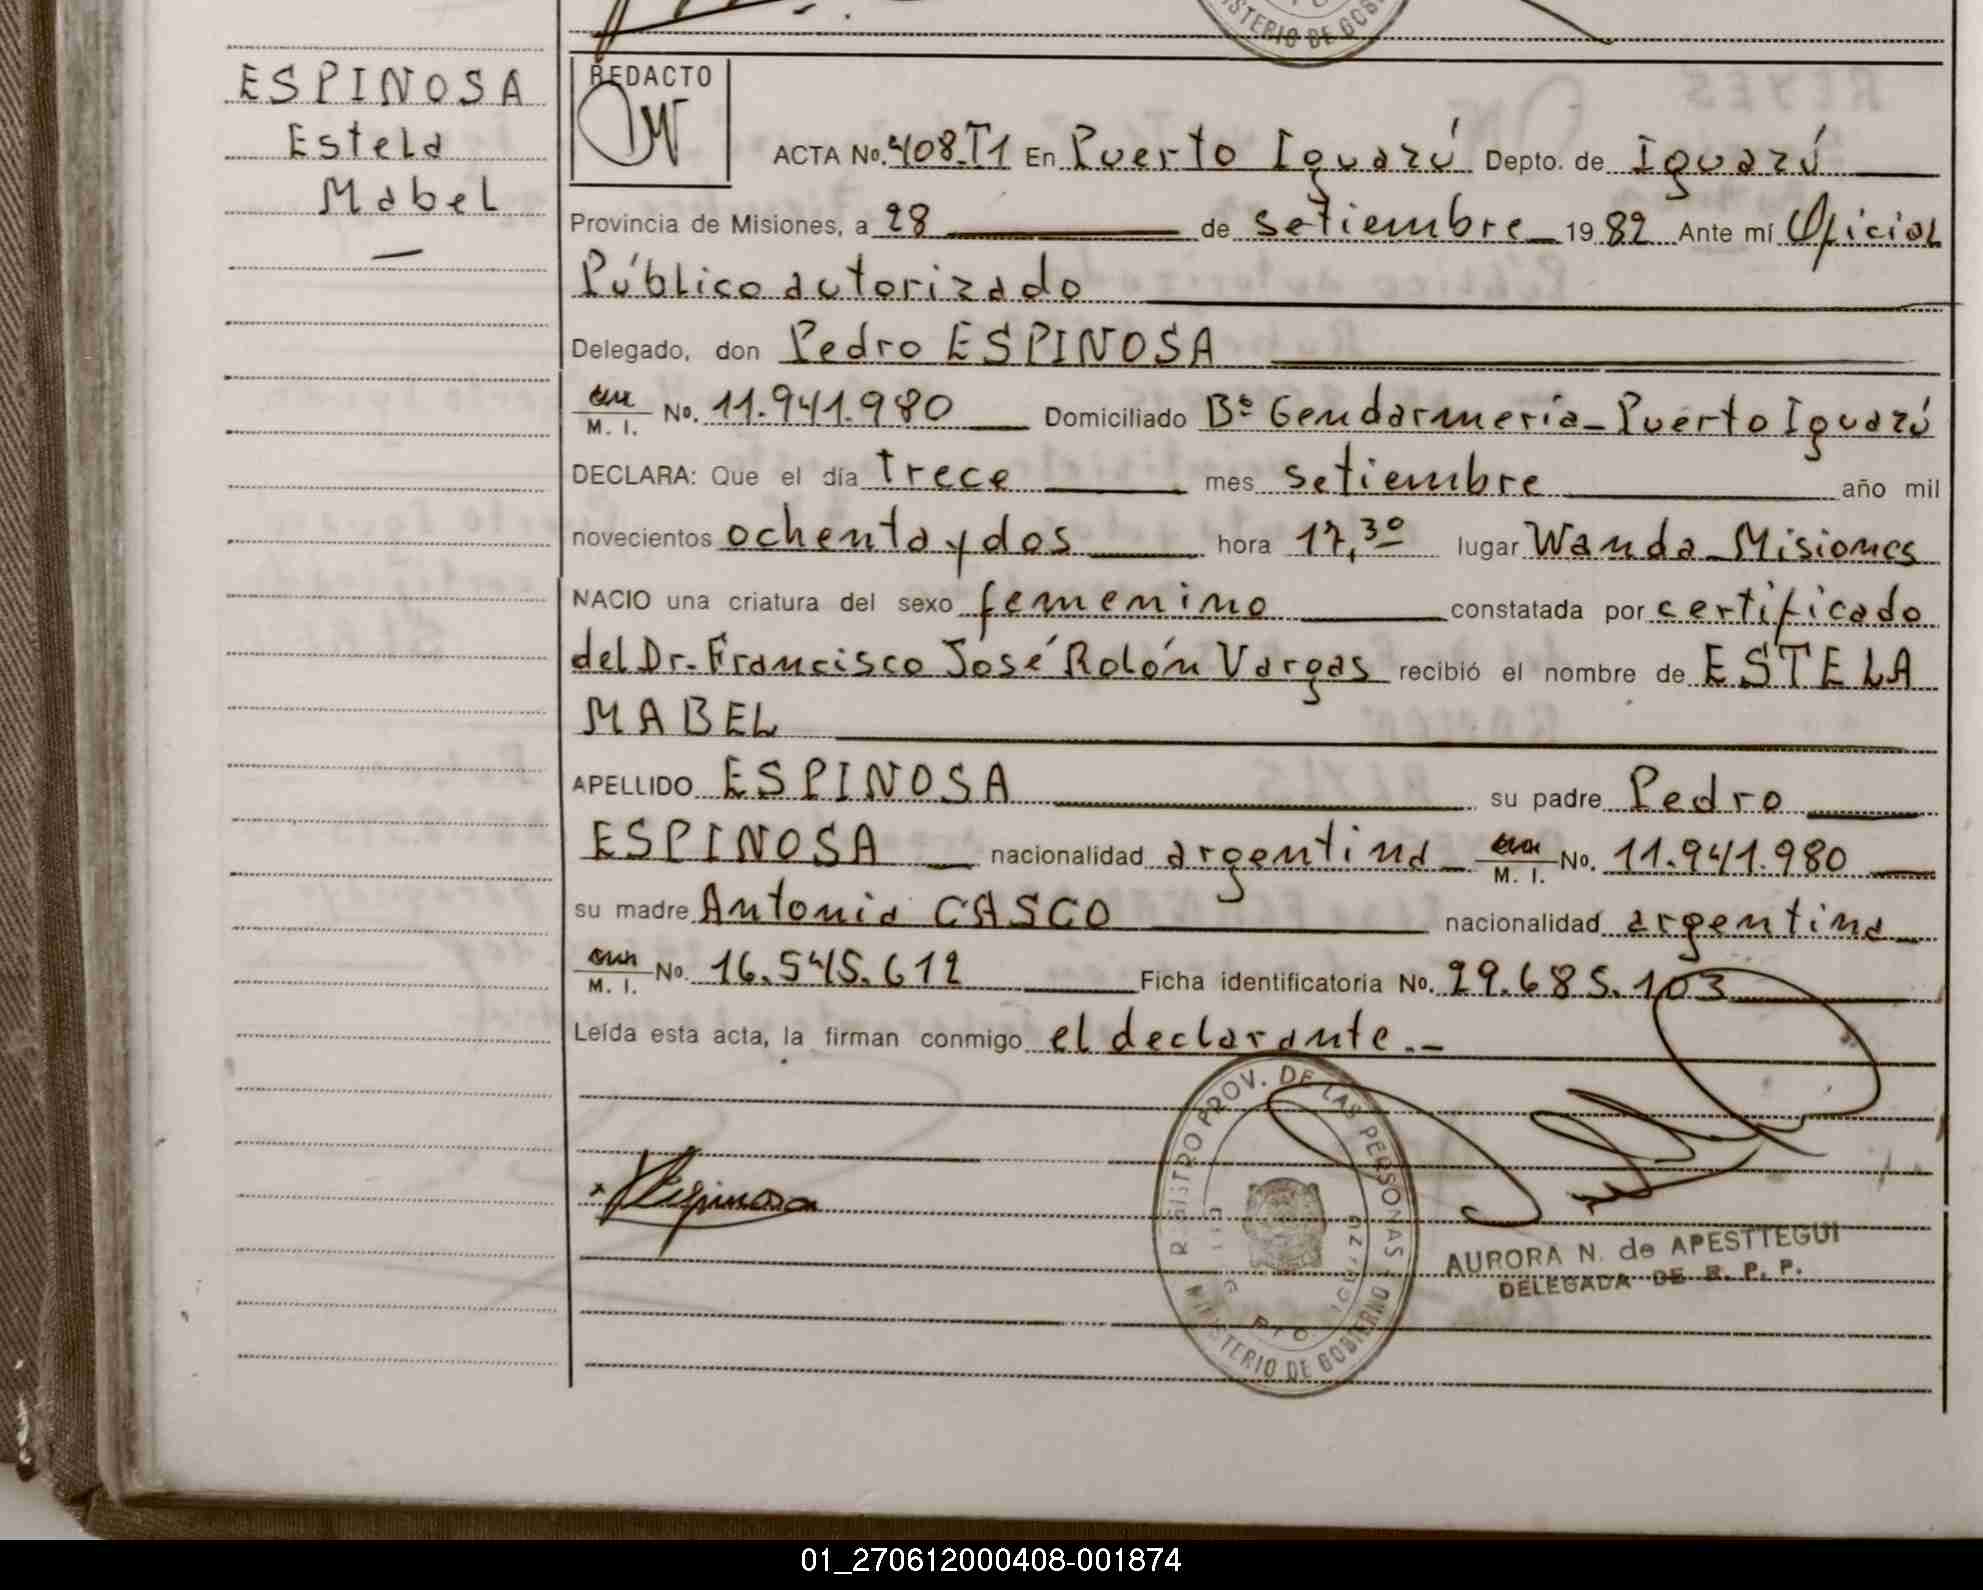 MINISTERIO DE GOB
ESPINOSA
Estela
Mabel
REDACTO
ACTA No. 408.T1 En Puerto Iguazú Depto. de Iguazú
Provincia de Misiones, a 28 de setiembre 1982 Ante mí Oficial
Público autorizado
Delegado, don Pedro ESPINOSA
M. I. No. 11.941.980 Domiciliado Bº Gendarmería - Puerto Iguazú
DECLARA: Que el día trece mes setiembre año mil
novecientos ochenta y dos hora 17,30 lugar Wanda - Misiones
NACIO una criatura del sexo femenino constatada por certificado
del Dr. Francisco José Rolón Vargas recibió el nombre de ESTELA
MABEL
APELLIDO ESPINOSA su padre Pedro
ESPINOSA nacionalidad argentina M. I. No. 11.941.980
su madre Antonia CASCO nacionalidad argentina
M. I. No. 16.545.612 Ficha identificatoria No. 29.685.103
Leída esta acta, la firman conmigo el declarante.-
Espinosa
REGISTRO PROV. DE LAS PERSONAS
MINISTERIO DE GOBIERNO
PTO. IGUAZU
AURORA N. de APESTTEGUI
DELEGADA DE R. P. P.
01_270612000408-001874